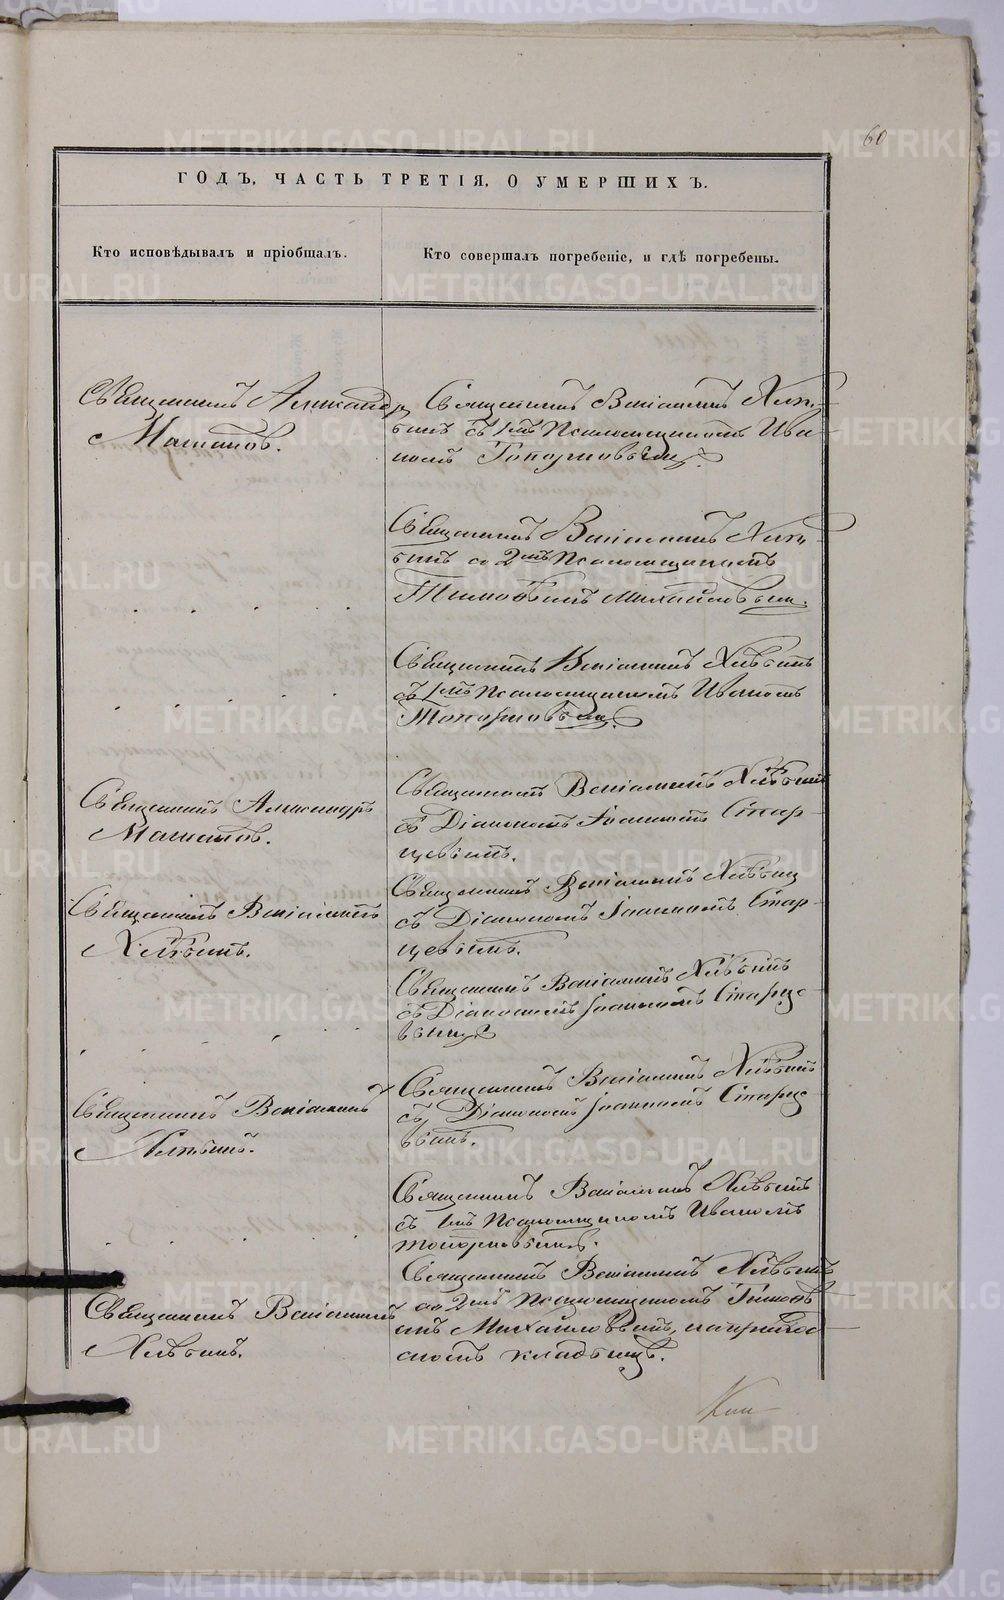 60
ГОДЪ, ЧАСТЬ ТРЕТІЯ, О УМЕРШИХЪ.
Кто исповѣдывалъ и пріобщалъ.
Кто совершалъ погребеніе, и гдѣ погребены.
Священникъ Александръ
Священникъ Веніаминъ Хлѣ-
бинъ съ 1мъ Псаломщикомъ Ива-
номъ Топорковымъ.
Священникъ Веніаминъ Хлѣ-
бинъ со 2мъ Псаломщикомъ
Михайловымъ.
Священникъ Веніаминъ Хлѣбинъ
съ 1мъ Псаломщикомъ Иваномъ
Топорковымъ.
Священникъ Александръ
Священникъ Веніаминъ Хлѣбинъ
съ Діакономъ Іоанномъ Стар-
цевымъ.
Священникъ Веніаминъ
Хлѣбинъ.
Священникъ Веніаминъ Хлѣбинъ
съ Діакономъ Іоанномъ Стар-
цевымъ.
Священникъ Веніаминъ Хлѣбинъ
съ Діакономъ Іоанномъ Старце-
вымъ
Священникъ Веніаминъ
Хлѣбинъ.
Священникъ Веніаминъ Хлѣбинъ
съ Діакономъ Іоанномъ Старце-
вымъ.
Священникъ Веніаминъ Хлѣбинъ
съ 1мъ Псаломщикомъ Иваномъ
Топорковымъ.
Священникъ Веніаминъ
Хлѣбинъ.
Священникъ Веніаминъ Хлѣбинъ
со 2мъ Псаломщикомъ
Михайловымъ, на приход-
скомъ кладбищѣ.
METRIKI.GASO-URAL.RU